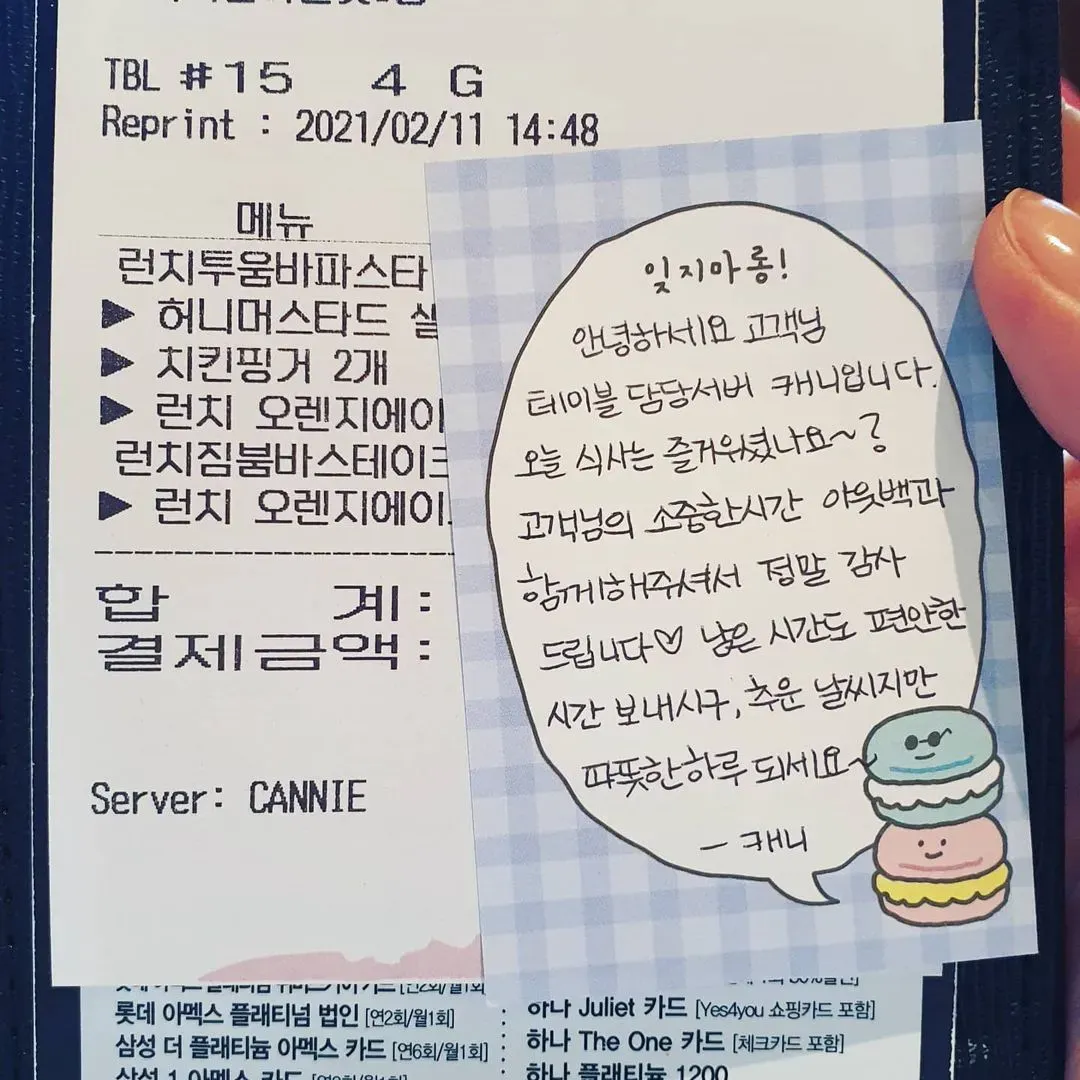 TBL #15 4 G
Reprint : 2021/02/11 14:48
메뉴
런치투움바파스타
▶ 허니머스타드
▶ 치킨핑거 2개
▶ 런치 오렌지에이
런치짐붐바스테이크
▶ 런치 오렌지에이
합 계:
결제금액:
Server: CANNIE
잊지마롱!
안녕하세요 고객님
테이블 담당서버 캐니입니다.
오늘 식사는 즐거우셨나요~?
고객님의 소중한시간 아웃백과
함께해주셔서 정말 감사
드립니다♡ 남은 시간도 편안한
시간 보내시구, 추운 날씨지만
따뜻한하루 되세요~
- 캐니
롯데 아멕스 플래티넘 법인 [연2회/월1회]
삼성 더 플래티늄 아멕스 카드 [연6회/월1회]
하나 Juliet 카드 [Yes4you 쇼핑카드 포함]
하나 The One 카드 [체크카드 포함]
하나 플래티늄 1200